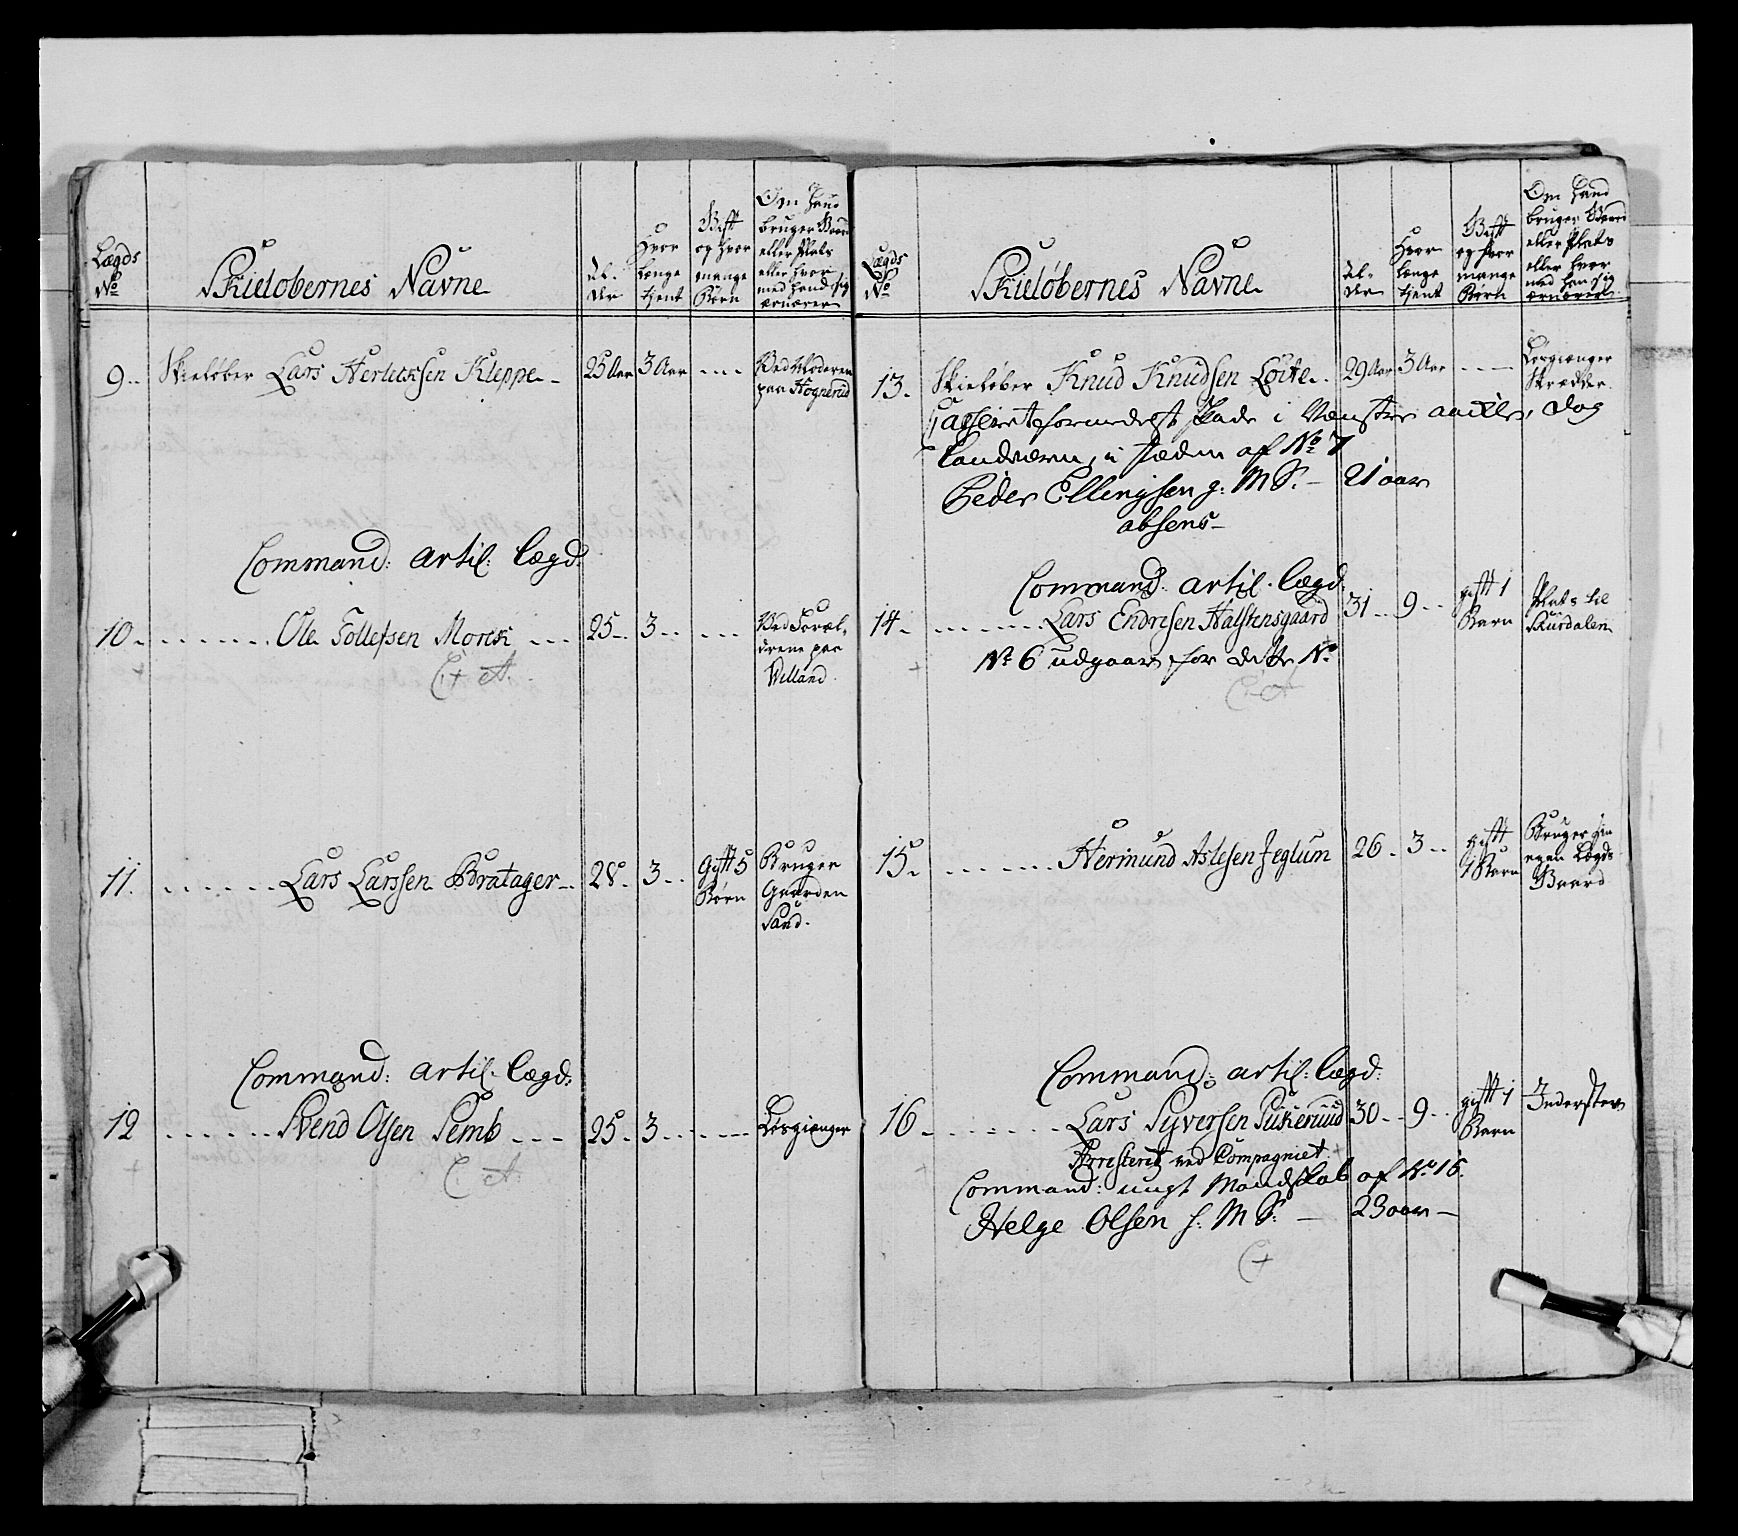 Lægds
No
Skieløbernes Navne
Al-
der
Hvor
længe
tient
Gift
og hvor
mange
Børn
Om hand
bruger Gaard
eller Plats
eller hvor
med hand sig
ernærer
9 Skieløber Lars Herleksen Kleppe 25 Aar 3 Aar
Ved Moderen
paa Hognerud
Command: artil: lægd:
10 Ole Tollefsen Moresi 25 3
Ved Foræl-
drene paa
Velland
C+ A.
11. Lars Larssen Bratager 28. 3
Gift 5
Børn
Bruger
Gaarden
Sand.
Command: artil: lægd:
12 Svend Olsen Semb 25. 3 Løsgiænger
C. A.
Lægds
No
Skieløbernes Navne
Al-
der
Hvor
længe
tient
Gift
og hvor
mange
Børn
Om hand
bruger Gaard
eller Plats
eller hvor
med han sig
ernærer
13. Skieløber Knud Knudsen Loite 29 Aar 3 Aar
Løsgiænger
Skrædder.
Casseret formedelst skade i Venster aackel, dog
Landværn, i stæden af No 7
Peder Ellingsen g: M S. 21 aar
absens
Command. artil. lægd.
14. Lars Endresen Halstensgaard 31 9
gift 1
Barn
Plads til
Skurdalen
No 6 udgaar for dette No
C. A
15. Hermund Aslesen Jeglum 26. 3
gift
1 Barn
Bruger sin
egen Lægds
Gaard
Command: artil: lægd:
16 Lars Syversen Pukerud 30 9
gift 1
Barn
Inderster
Arresteret ved Compagniet
Command: ungt Mandskab af No 16.
Helge Olsen s: M S: 23 aar
C+